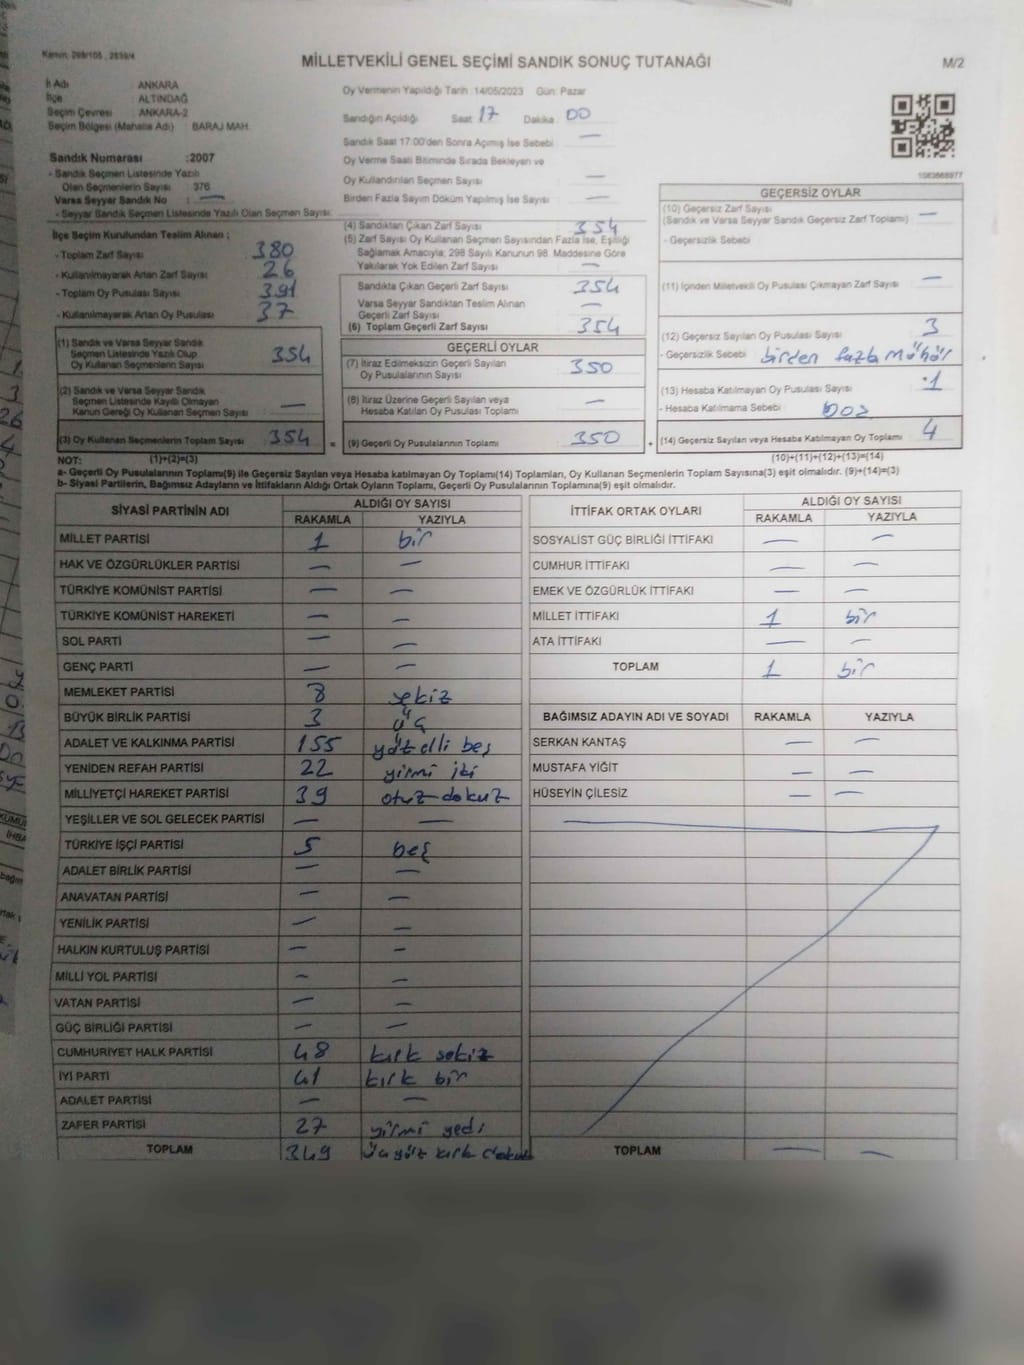 Kanun: 298/105 , 2839/4
MİLLETVEKİLİ GENEL SEÇİMİ SANDIK SONUÇ TUTANAĞI
M/2
İl Adı : ANKARA
İlçe : ALTINDAĞ
Seçim Çevresi : ANKARA-2
Seçim Bölgesi (Mahalle Adı) : BARAJ MAH.
Sandık Numarası :2007
- Sandık Seçmen Listesinde Yazılı
Olan Seçmenlerin Sayısı : 376
Varsa Seyyar Sandık No : —
- Seyyar Sandık Seçmen Listesinde Yazılı Olan Seçmen Sayısı:
Oy Vermenin Yapıldığı Tarih :14/05/2023 Gün: Pazar
Sandığın Açıldığı Saat 17 Dakika 00
Sandık Saat 17:00'den Sonra Açımış İse Sebebi —
Oy Verme Saati Bitiminde Sırada Bekleyen ve
Oy Kullandırılan Seçmen Sayısı —
Birden Fazla Sayım Döküm Yapılmış İse Sayısı —
1083668977
İlçe Seçim Kurulundan Teslim Alınan ;
- Toplam Zarf Sayısı 380
- Kullanılmayarak Artan Zarf Sayısı 26
- Toplam Oy Pusulası Sayısı 391
- Kullanılmayarak Artan Oy Pusulası 37
(1) Sandık ve Varsa Seyyar Sandık
Seçmen Listesinde Yazılı Olup
Oy Kullanan Seçmenlerin Sayısı 354
(2) Sandık ve Varsa Seyyar Sandık
Seçmen Listesinde Kayıtlı Olmayan
Kanun Gereği Oy Kullanan Seçmen Sayısı —
(3) Oy Kullanan Seçmenlerin Toplam Sayısı 354 =
(4) Sandıktan Çıkan Zarf Sayısı 354
(5) Zarf Sayısı Oy Kullanan Seçmen Sayısından Fazla İse, Eşitliği
Sağlamak Amacıyla; 298 Sayılı Kanunun 98. Maddesine Göre
Yakılarak Yok Edilen Zarf Sayısı —
Sandıkta Çıkan Geçerli Zarf Sayısı 354
Varsa Seyyar Sandıktan Teslim Alınan
Geçerli Zarf Sayısı —
(6) Toplam Geçerli Zarf Sayısı 354
GEÇERLİ OYLAR
(7) İtiraz Edilmeksizin Geçerli Sayılan
Oy Pusulalarının Sayısı 350
(8) İtiraz Üzerine Geçerli Sayılan veya
Hesaba Katılan Oy Pusulası Toplamı —
(9) Geçerli Oy Pusulalarının Toplamı 350 +
GEÇERSİZ OYLAR
(10) Geçersiz Zarf Sayısı
(Sandık ve Varsa Seyyar Sandık Geçersiz Zarf Toplamı) —
- Geçersizlik Sebebi
(11) İçinden Milletvekili Oy Pusulası Çıkmayan Zarf Sayısı —
(12) Geçersiz Sayılan Oy Pusulası Sayısı 3
- Geçersizlik Sebebi birden fazla mühür
(13) Hesaba Katılmayan Oy Pusulası Sayısı 1
- Hesaba Katılmama Sebebi boş
(14) Geçersiz Sayılan veya Hesaba Katılmayan Oy Toplamı 4
NOT: (1)+(2)=(3) (10)+(11)+(12)+(13)=(14)
a- Geçerli Oy Pusulalarının Toplamı(9) ile Geçersiz Sayılan veya Hesaba katılmayan Oy Toplamı(14) Toplamları, Oy Kullanan Seçmenlerin Toplam Sayısına(3) eşit olmalıdır. (9)+(14)=(3)
b- Siyasi Partilerin, Bağımsız Adayların ve İttifakların Aldığı Ortak Oyların Toplamı, Geçerli Oy Pusulalarının Toplamına(9) eşit olmalıdır.
SİYASİ PARTİNİN ADI ALDIĞI OY SAYISI
RAKAMLA YAZIYLA
MİLLET PARTİSİ 1 bir
HAK VE ÖZGÜRLÜKLER PARTİSİ — —
TÜRKİYE KOMÜNİST PARTİSİ — —
TÜRKİYE KOMÜNİST HAREKETİ — —
SOL PARTİ — —
GENÇ PARTİ — —
MEMLEKET PARTİSİ 8 sekiz
BÜYÜK BİRLİK PARTİSİ 3 üç
ADALET VE KALKINMA PARTİSİ 155 yüz elli beş
YENİDEN REFAH PARTİSİ 22 yirmi iki
MİLLİYETÇİ HAREKET PARTİSİ 39 otuz dokuz
YEŞİLLER VE SOL GELECEK PARTİSİ — —
TÜRKİYE İŞÇİ PARTİSİ 5 beş
ADALET BİRLİK PARTİSİ — —
ANAVATAN PARTİSİ — —
YENİLİK PARTİSİ — —
HALKIN KURTULUŞ PARTİSİ — —
MİLLİ YOL PARTİSİ — —
VATAN PARTİSİ — —
GÜÇ BİRLİĞİ PARTİSİ — —
CUMHURİYET HALK PARTİSİ 48 kırk sekiz
İYİ PARTİ 41 kırk bir
ADALET PARTİSİ — —
ZAFER PARTİSİ 27 yirmi yedi
TOPLAM 349 üçyüz kırk dokuz
İTTİFAK ORTAK OYLARI ALDIĞI OY SAYISI
RAKAMLA YAZIYLA
SOSYALİST GÜÇ BİRLİĞİ İTTİFAKI — —
CUMHUR İTTİFAKI — —
EMEK VE ÖZGÜRLÜK İTTİFAKI — —
MİLLET İTTİFAKI 1 bir
ATA İTTİFAKI — —
TOPLAM 1 bir
BAĞIMSIZ ADAYIN ADI VE SOYADI RAKAMLA YAZIYLA
SERKAN KANTAŞ — —
MUSTAFA YİĞİT — —
HÜSEYİN ÇİLESİZ — —
TOPLAM — —